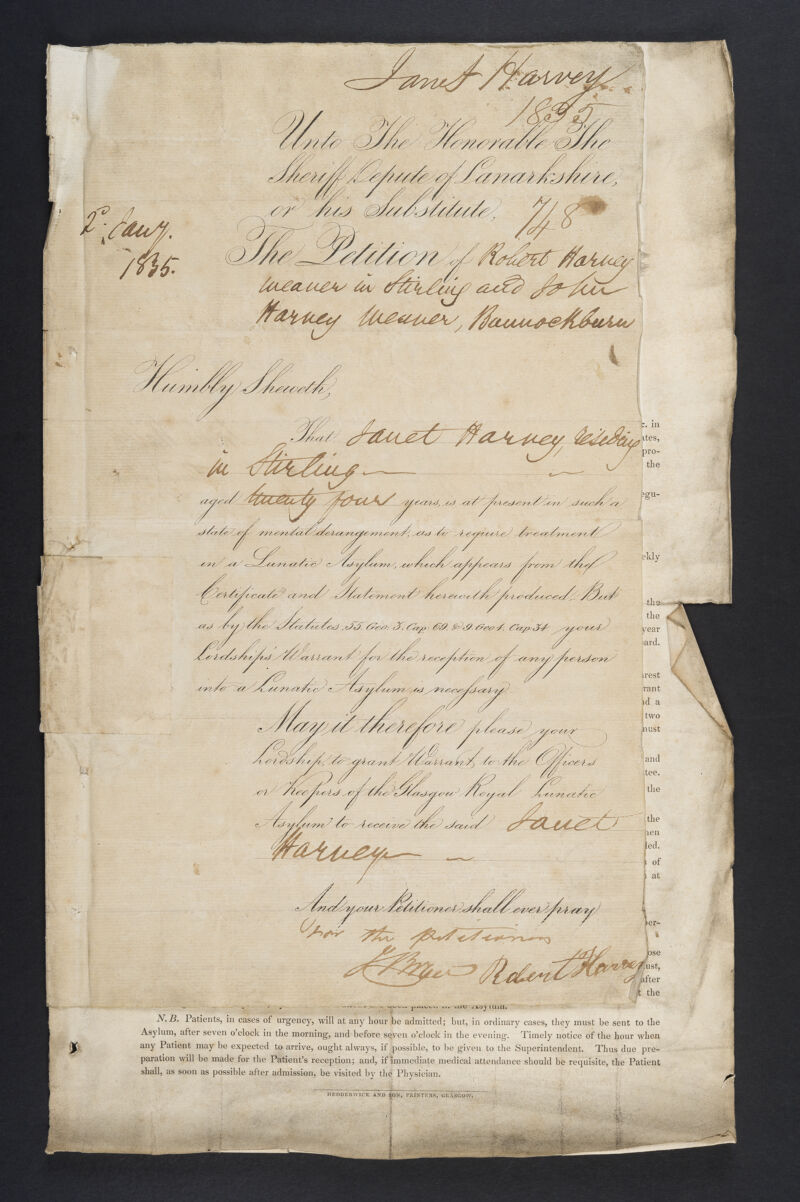 Janet Harvey
1835
Unto The Honorable The
Sheriff Depute of Lanarkshire,
or his Substitute,
748
2d. Jany.
1835.
The Petition of Robert Harvey
Weaver in Stirling and John
Harvey Weaver, Bannockburn
Humbly Sheweth,
That Janet Harvey, residing
in Stirling
aged twenty four years, is at present in such a
state of mental derangement, as to require treatment
in a Lunatic Asylum, which appears from the
Certificate and Statement herewith produced. But
as by the Statutes 55. Geo. 3. Cap. 69. & 9. Geo 4. Cap. 34 your
Lordship's Warrant for the reception of any person
into a Lunatic Asylum is necessary
May it therefore please your
Lordship, to grant Warrant, to the Officers
or Keepers, of the Glasgow Royal Lunatic
Asylum to receive the said Janet
Harvey
And your Petitioner shall ever pray
For the petitioners
Robert Harvey
in
pro-
the
egu-
ekly
the
the
year
ard.
arest
rant
nd a
two
must
and
tee.
the
the
hen
led.
of
at
per-
ose
ust,
after
the
in the Asylum.
N.B. Patients, in cases of urgency, will at any hour be admitted; but, in ordinary cases, they must be sent to the
Asylum, after seven o'clock in the morning, and before seven o'clock in the evening. Timely notice of the hour when
any Patient may be expected to arrive, ought always, if possible, to be given to the Superintendent. Thus due pre-
paration will be made for the Patient's reception; and, if immediate medical attendance should be requisite, the Patient
shall, as soon as possible after admission, be visited by the Physician.
HEDDERWICK AND SON, PRINTERS, GLASGOW.